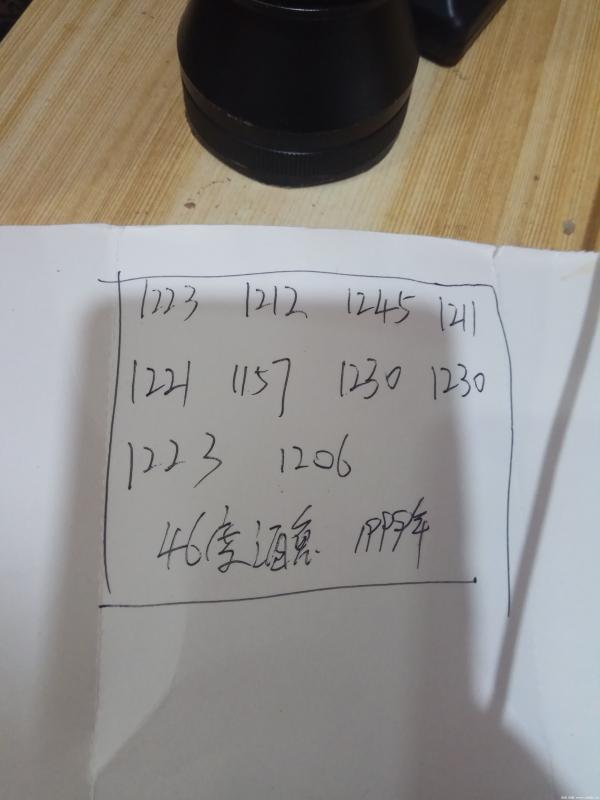 1223 1212 1245 1211
1221 1157 1230 1230
1223 1206
46度酒鬼 1997年